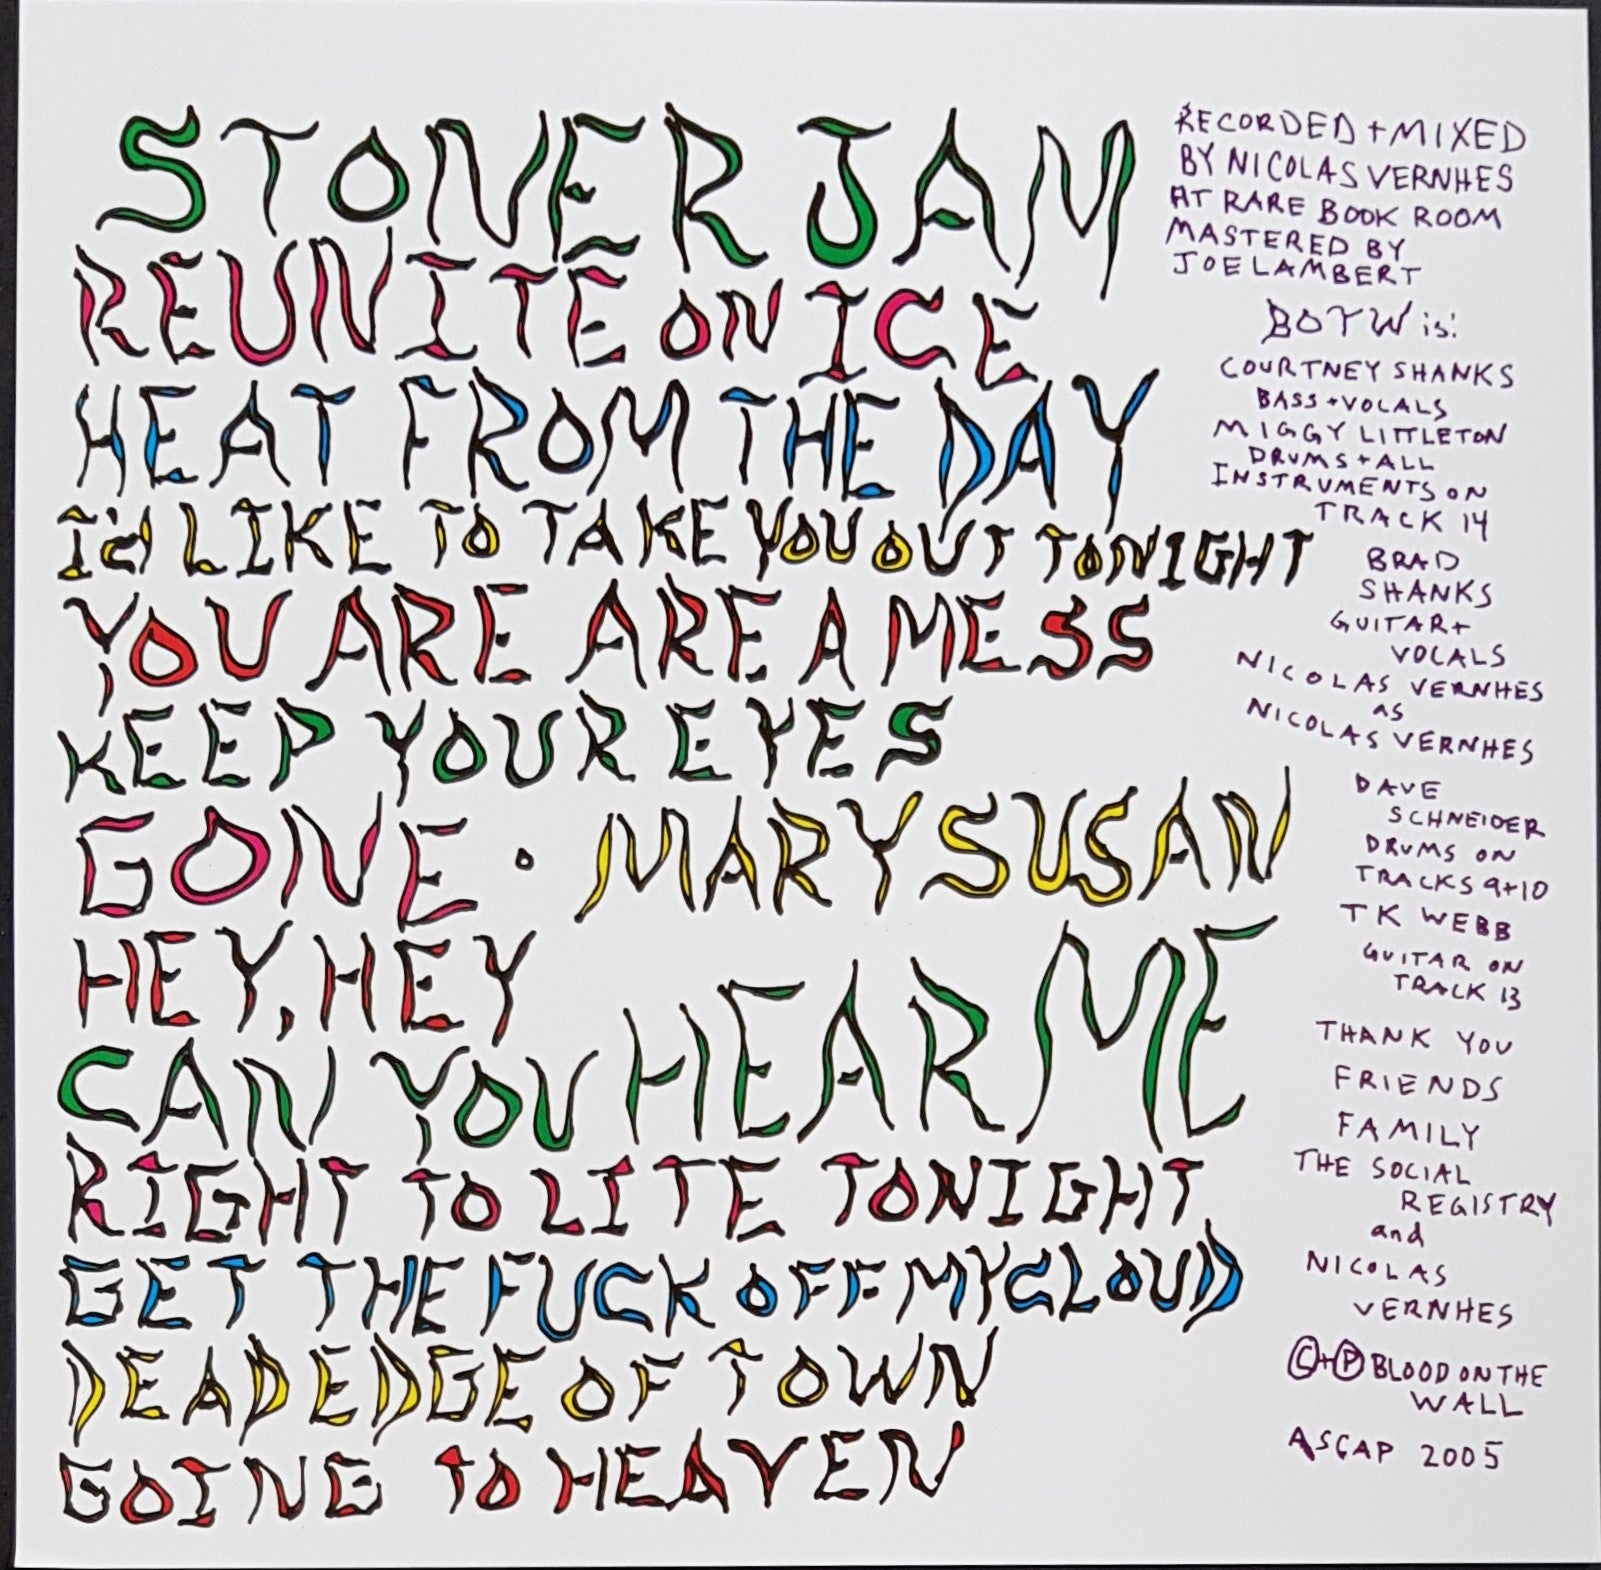 STONER JAM
REUNITE ON ICE
HEAT FROM THE DAY
I'd LIKE TO TAKE YOU OUT TONIGHT
YOU ARE ARE A MESS
KEEP YOUR EYES
GONE • MARY SUSAN
HEY, HEY
CAN YOU HEAR ME
RIGHT TO LITE TONIGHT
GET THE FUCK OFF MY CLOUD
DEAD EDGE OF TOWN
GOING TO HEAVEN
RECORDED + MIXED
BY NICOLAS VERNHES
AT RARE BOOK ROOM
MASTERED BY
JOE LAMBERT
BOTW is:
COURTNEY SHANKS
BASS + VOCALS
MIGGY LITTLETON
DRUMS + ALL
INSTRUMENTS ON
TRACK 14
BRAD
SHANKS
GUITAR +
VOCALS
NICOLAS VERNHES
AS
NICOLAS VERNHES
DAVE
SCHNEIDER
DRUMS ON
TRACKS 9+10
TK WEBB
GUITAR ON
TRACK 13
THANK YOU
FRIENDS
FAMILY
THE SOCIAL
REGISTRY
and
NICOLAS
VERNHES
©+℗ BLOOD ON THE
WALL
ASCAP 2005